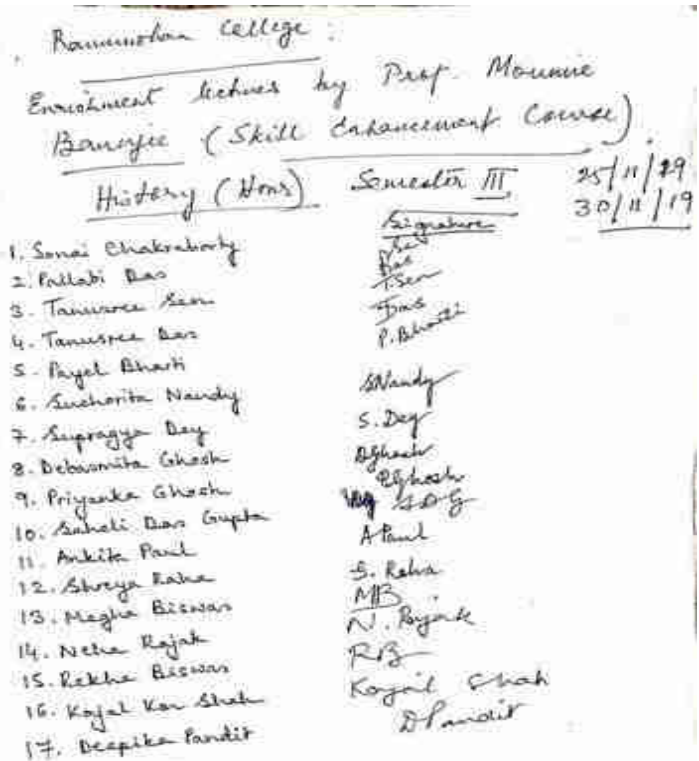 Rammohan College:
Enrichment lectures by Prof. Moumie
Banerjee (Skill Enhancement Course)
History (Hons) Semester III 25/11/19
30/11/19
Signature
1. Sonai Chakraborty
2. Pallabi Das Das
3. Tanusree Sen T.Sen
4. Tanusree Das Das
5. Payel Bharti P. Bharti
6. Sucharita Nandy SNandy
7. Supragya Dey S. Dey
8. Debasmita Ghosh DGhosh
9. Priyanka Ghosh PGhosh
10. Saheli Das Gupta SDG
11. Ankita Paul A Paul
12. Shreya Raha S. Raha
13. Megha Biswas MB
14. Neha Rajak N. Rajak
15. Rekha Biswas RB
16. Kajal Kar Shah Kajal Shah
17. Deepika Pandit DPandit